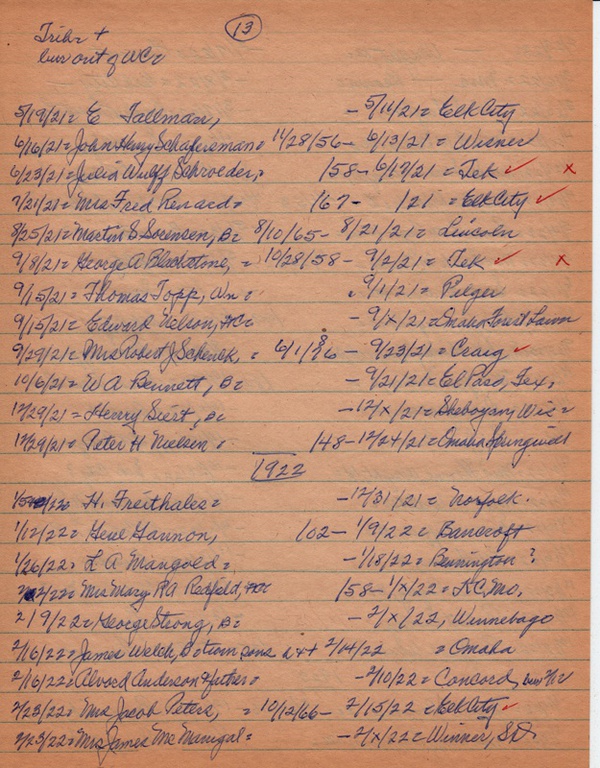 13
Trib +
bur out of WC
5/19/21 = E Tallman, - 5/14/21 = Elk City
6/16/21 = John Henry Schafersman = 11/28/56 - 6/13/21 = Wisner
6/23/21 = Julia Wulff Schroeder, = 158 - 6/17/21 = Tek ✓ x
7/21/21 = Mrs Fred Renard = 167 - 121 = Elk City ✓
8/25/21 = Martin S Sorensen, B = 8/10/65 - 8/21/21 = Lincoln
9/8/21 = George A Blackstone, = 10/28/58 - 9/2/21 = Tek ✓ x
9/15/21 = Thomas Topp, Wn = 9/1/21 = Pilger
9/15/21 = Edward Nelson, - 9/x/21 = Omaha Forest Lawn
9/29/21 = Mrs Robert J Schenck, = 6/1/ - 9/23/21 = Craig ✓
10/6/21 = W A Bennett, B = - 9/21/21 = El Paso, Tex.
12/29/21 = Henry Siert, B = - 12/x/21 = Sheboygan, Wis =
12/29/21 = Peter H Nielsen = 148 - 12/24/21 = Omaha Springwell
1922
H. Freithales = - 12/31/21 = Norfolk.
1/12/22 = Gene Gannon, 102 - 1/9/22 = Bancroft
1/26/22 = L A Mangold = - 1/18/22 = Bennington ?
2/2/22 = Mrs Mary RA Redfeld, 158 - 1/x/22 = K.C, Mo.
2/9/22 = George Strong, B = - 2/x/22, Winnebago
2/16/22 = James Welch, B 2/14/22 = Omaha
2/16/22 = Alvord Anderson - 2/10/22 = Concord, bur 2/12
2/23/22 = Mrs Jacob Peters, = 10/12/66 - 2/15/22 = Elk City ✓
2/23/22 = Mrs James Mc Manigal = - 2/x/22 = Winner, SD